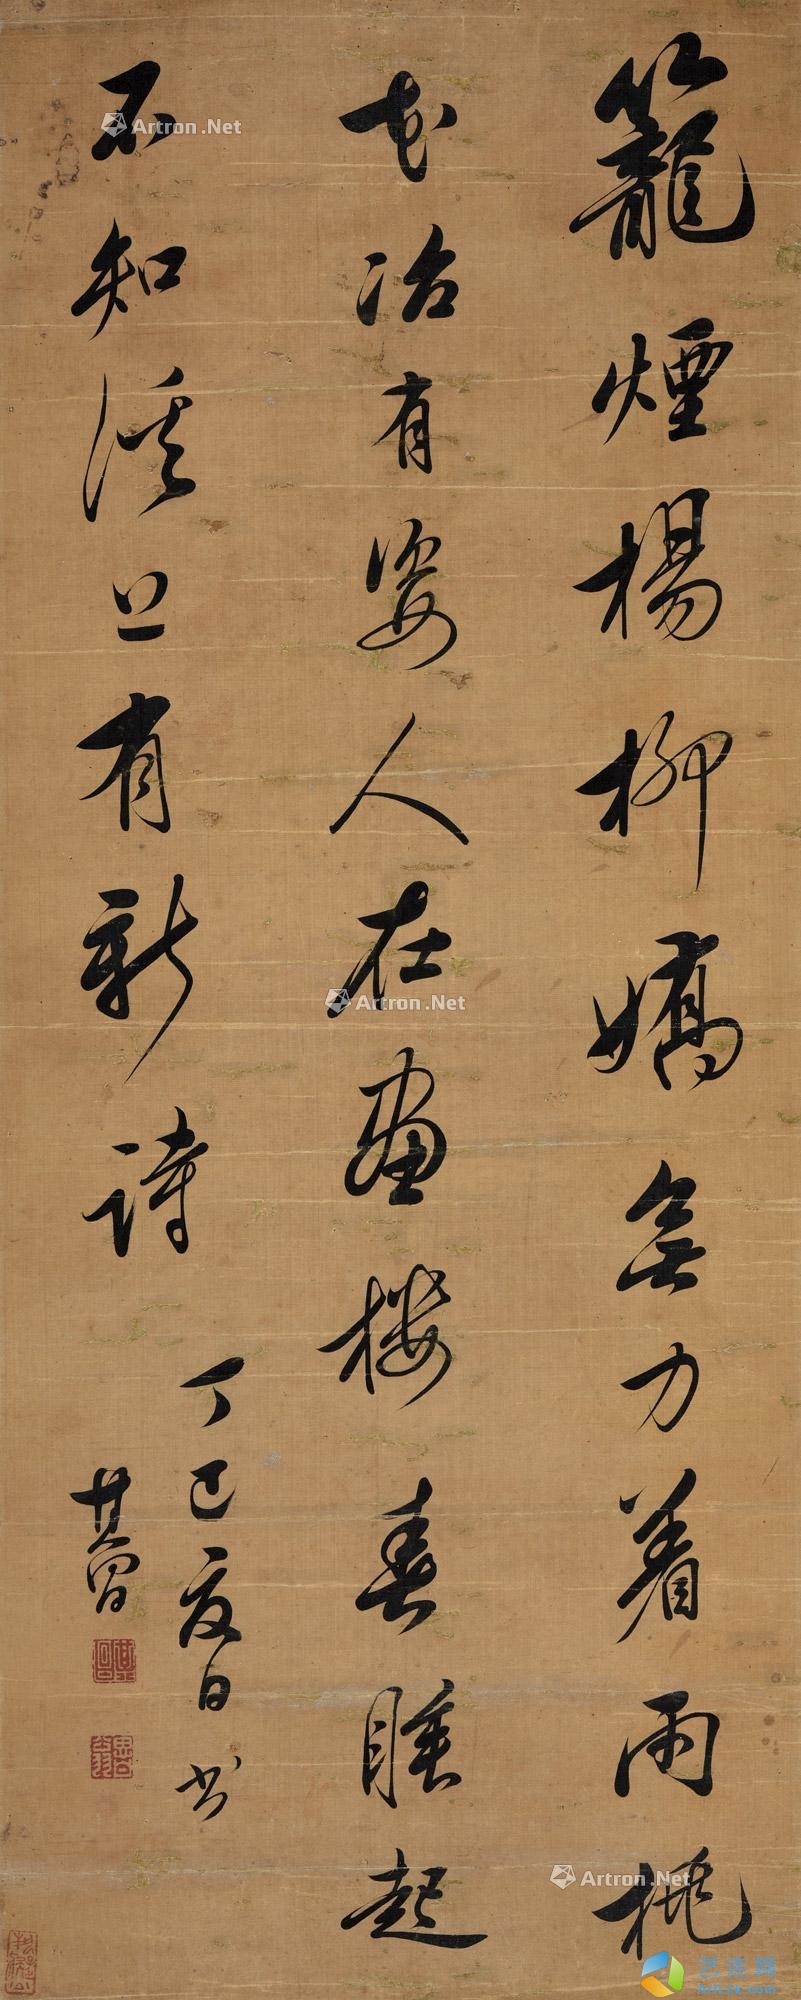 籠煙楊柳嬌無力着雨桃
花冶有姿人在畫樓春睡起
不知溪上有新詩
丁巳夏日書
其昌
其昌
思翁
Artron.Net
Artron.Net
Artron.Net
艺连网